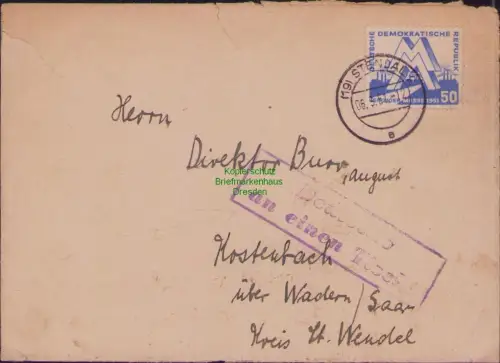 DEUTSCHE DEMOKRATISCHE REPUBLIK
50
(19) STENDAL
a
Herrn
Direktor Burr, August
Kopierschutz
Briefmarkenhaus
Dresden
an einen
Kostenbach
über Wadern/Saar
Kreis St. Wendel